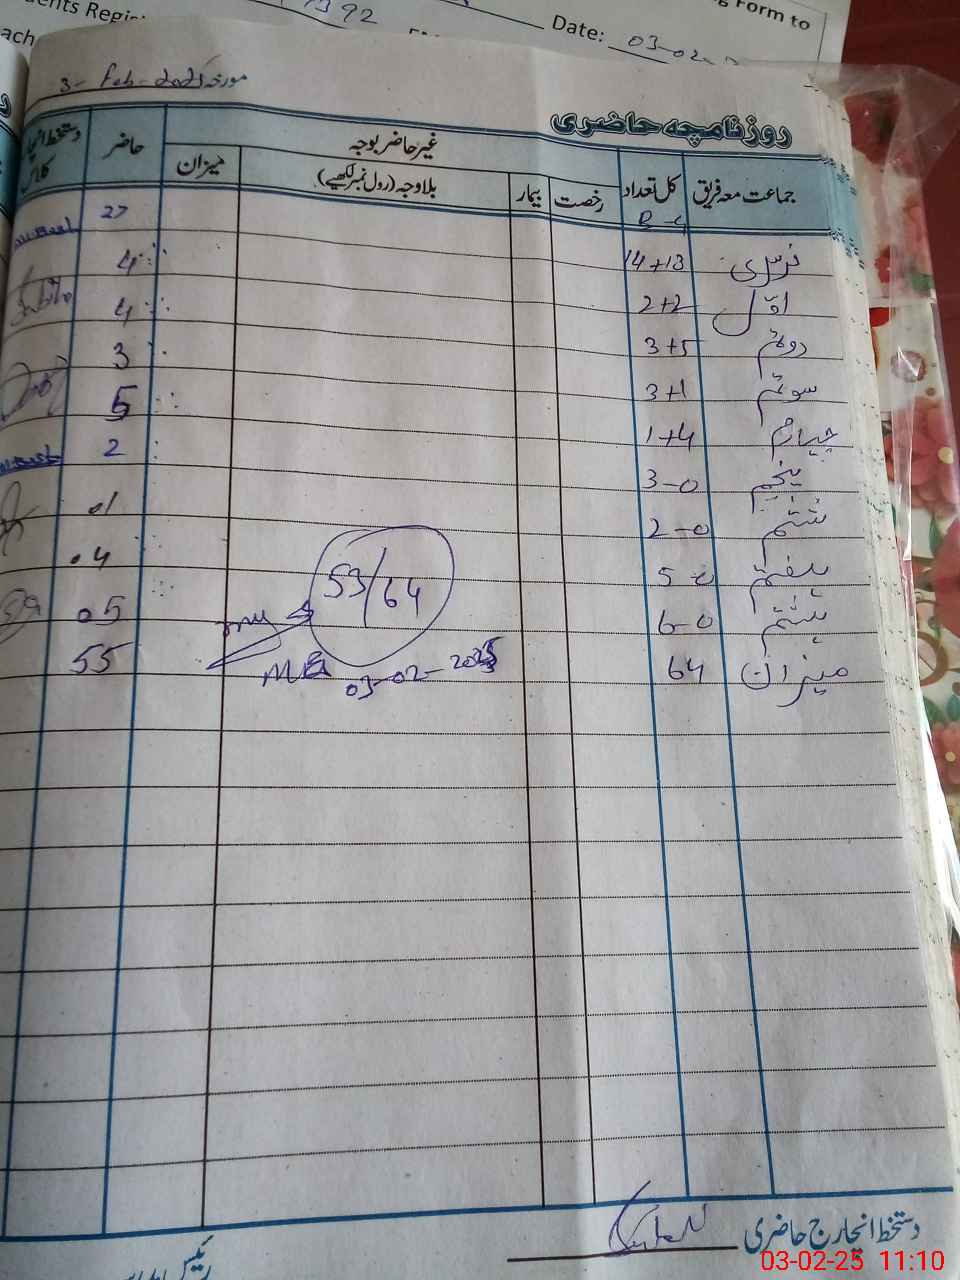 ents Regis
392
g Form to
ach
Date: 03-02-2
مورخہ 3-Feb-2025
روزنامچہ حاضری
جماعت معہ فریق کل تعداد رخصت بیمار غیر حاضر بوجہ بلاوجہ (رول نمبر لکھیے) میزان حاضر دستخط انچارج کلاس
B-G 27
نرسری 14+13 4
اوّل 2+2 4
دوئم 3+5 3
سوئم 3+1 5
چہارم 1+4 2
پنجم 3-0 01
ششم 2-0 04
ہفتم 5-0 05
ہشتم 6-0
میزان 64 55
53/64
03-02-2025
دستخط انچارج حاضری
03-02-25 11:10